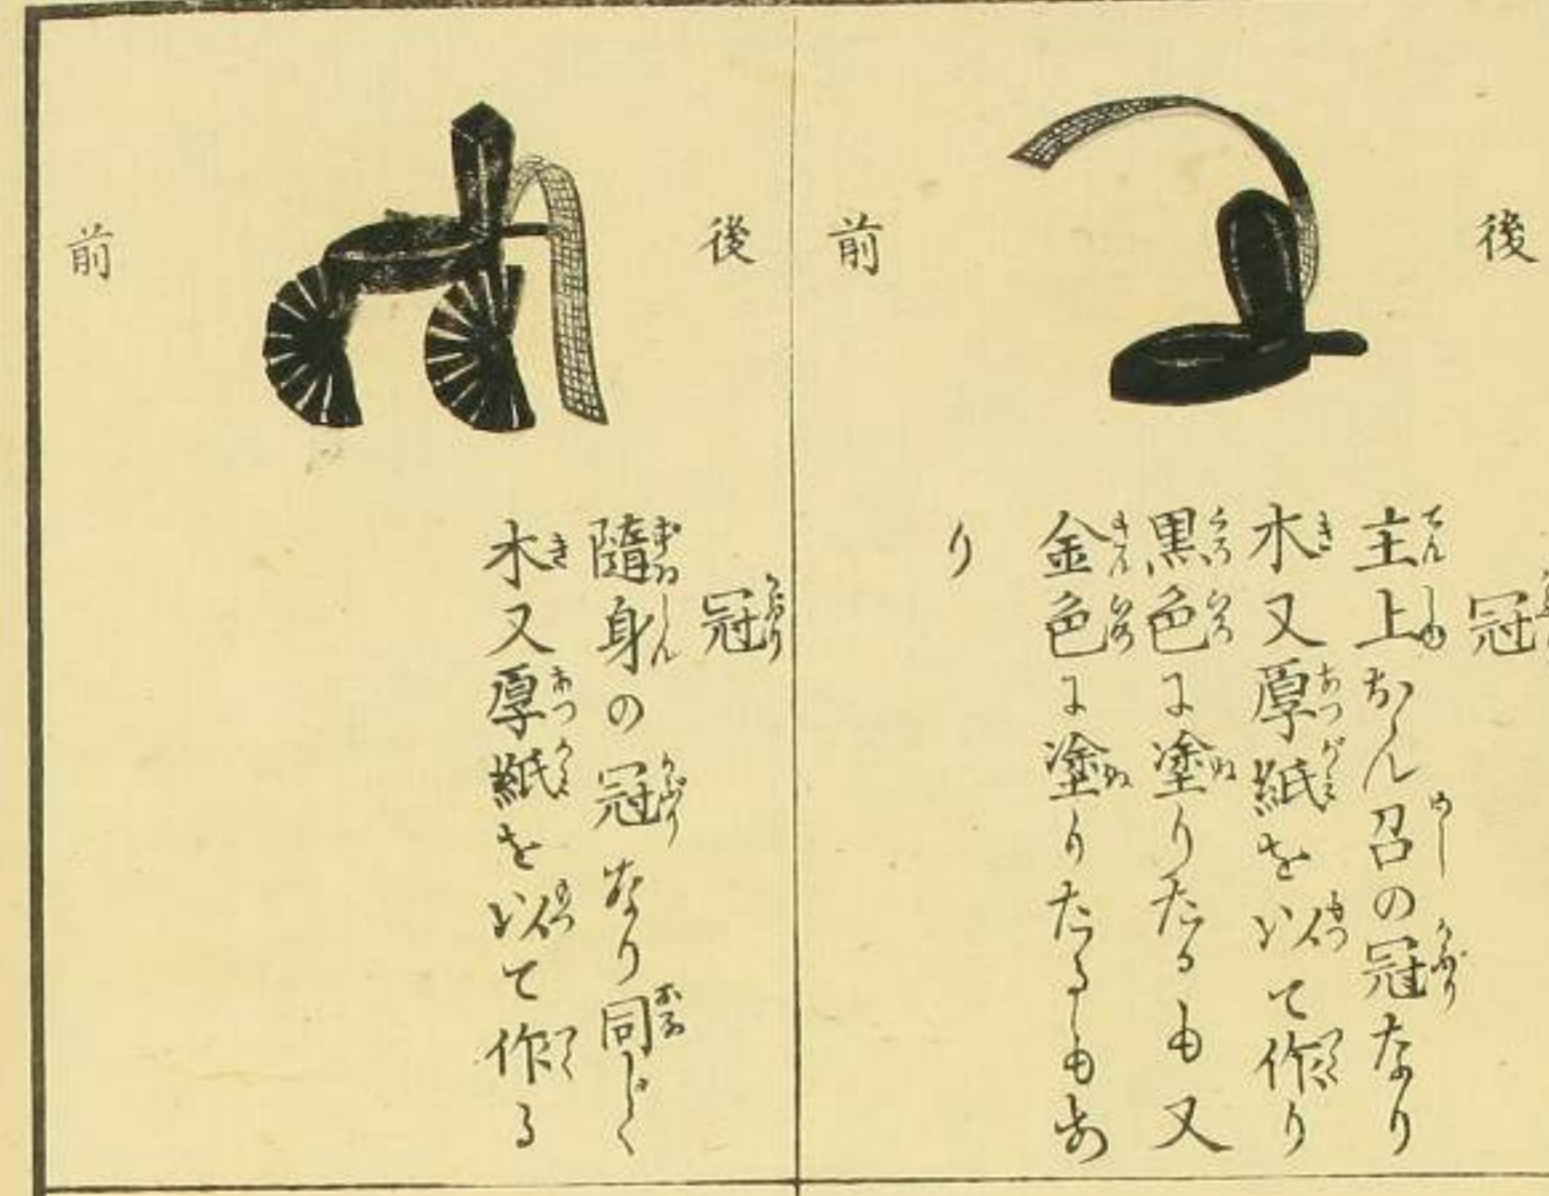 後
前
冠
主上なん召の冠なり
木又厚紙を以て作り
黒色に塗りたるも又
金色に塗りたるもあ
り
後
前
冠
隨身の冠なり同じく
木又厚紙を以て作る